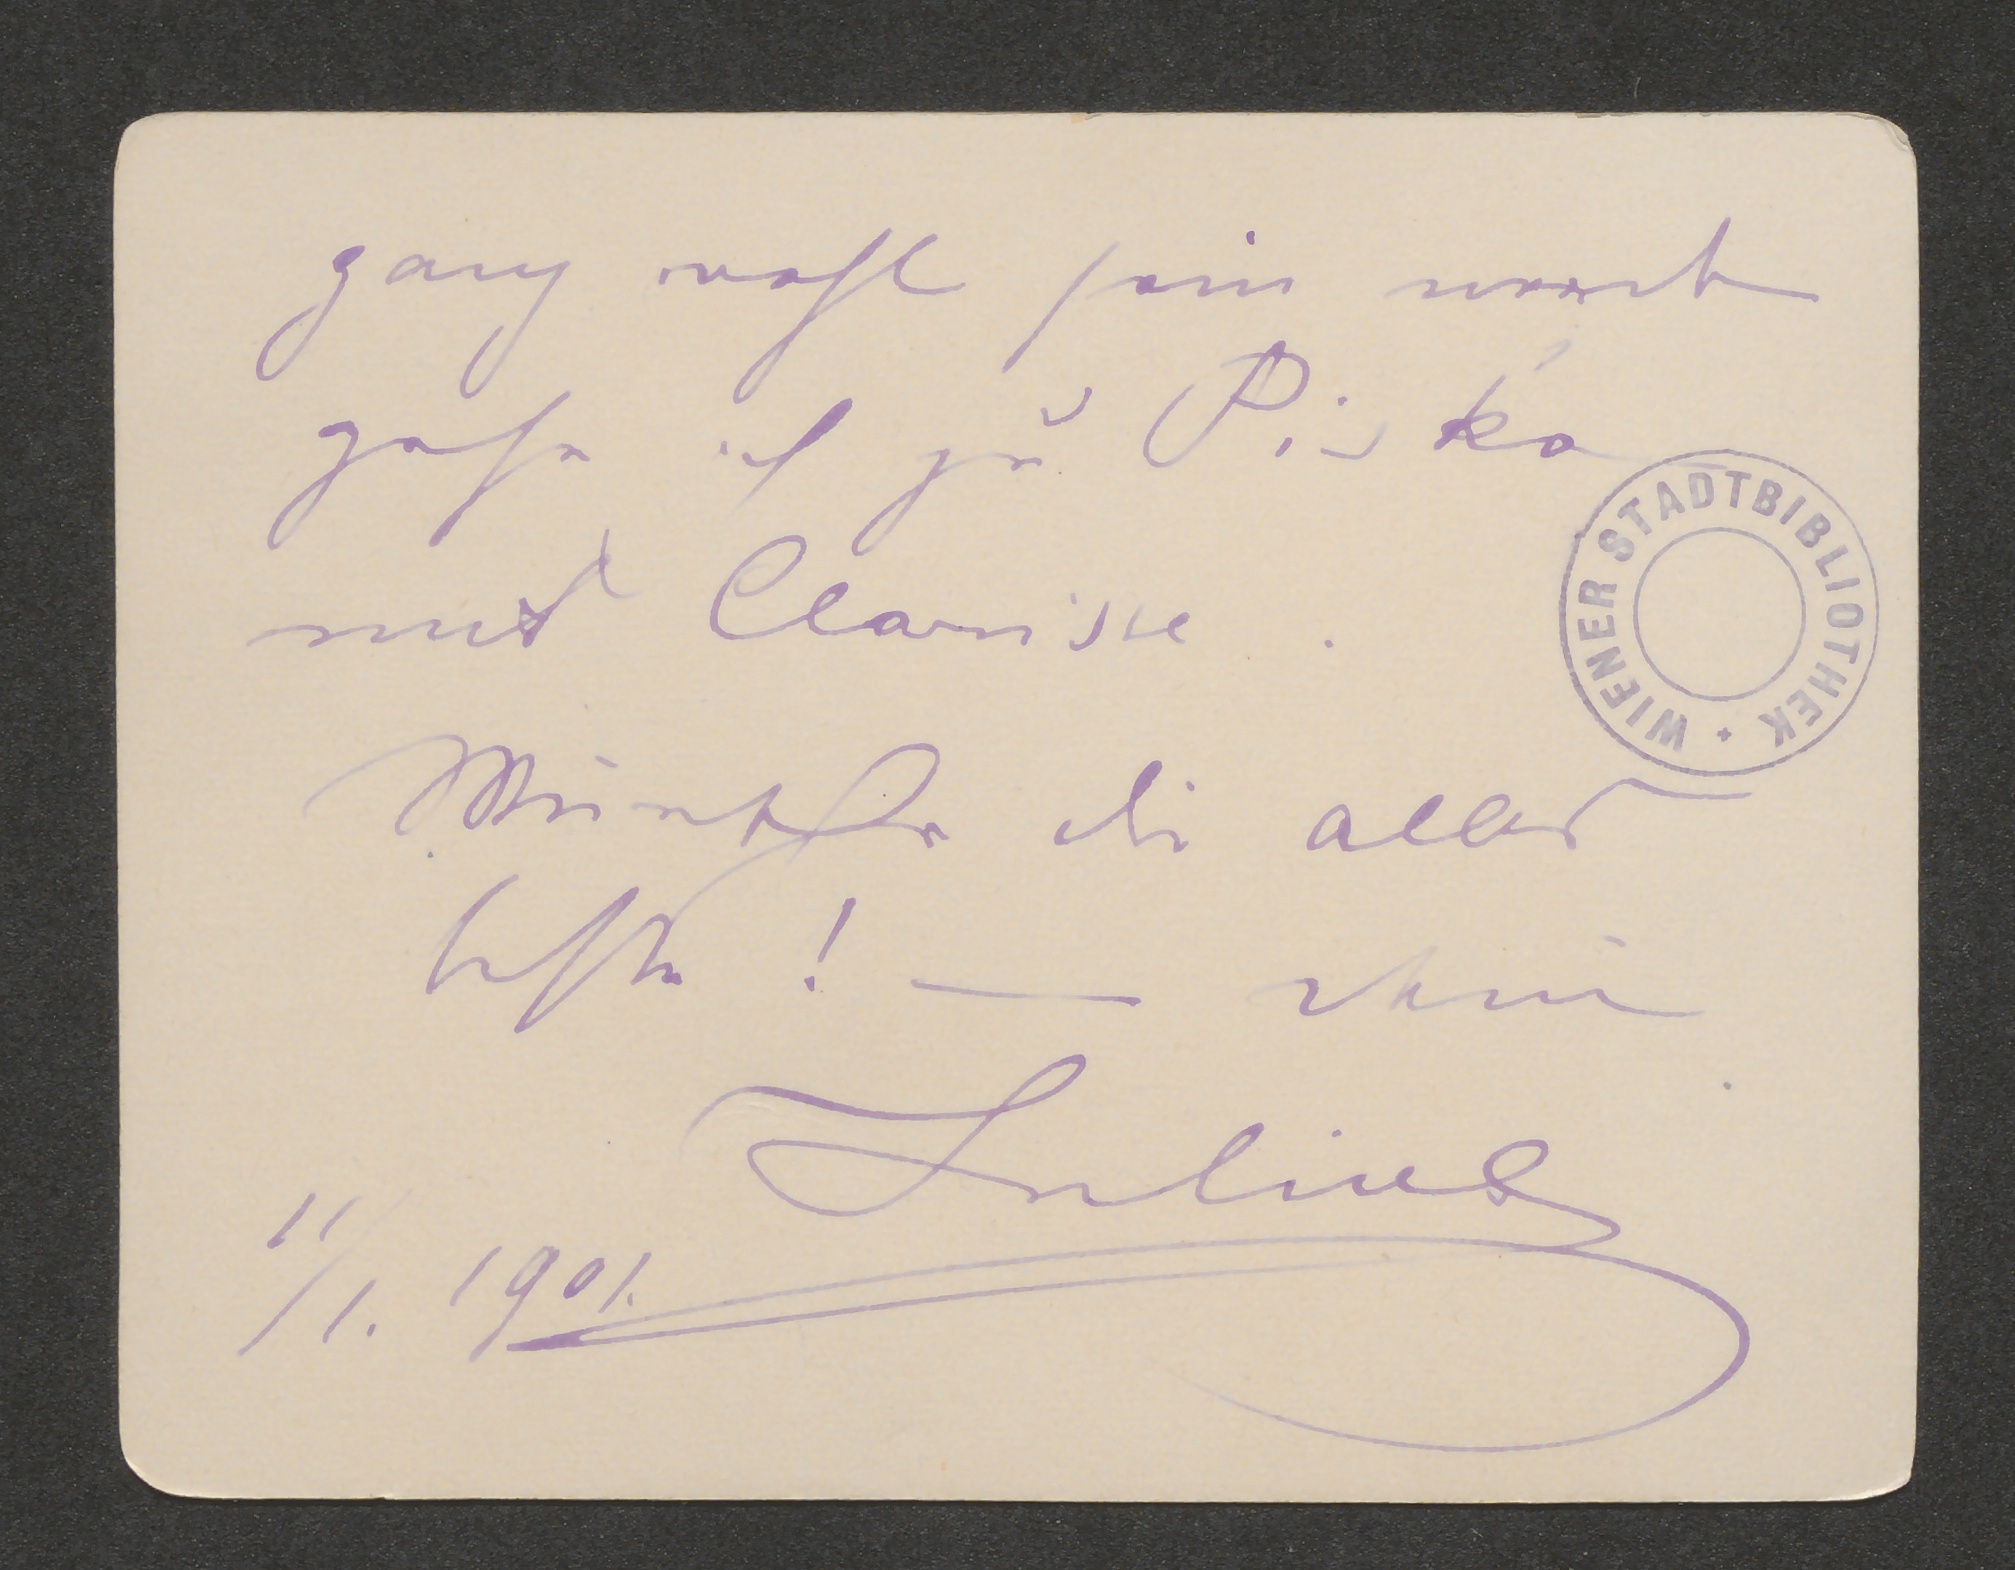 ganz wohl sein werde
gehe ich zu Piska
mit Clarisse.
WIENER STADTBIBLIOTHEK
Wünsche dir aller
beste! — dein
Julius
11/1. 1901.